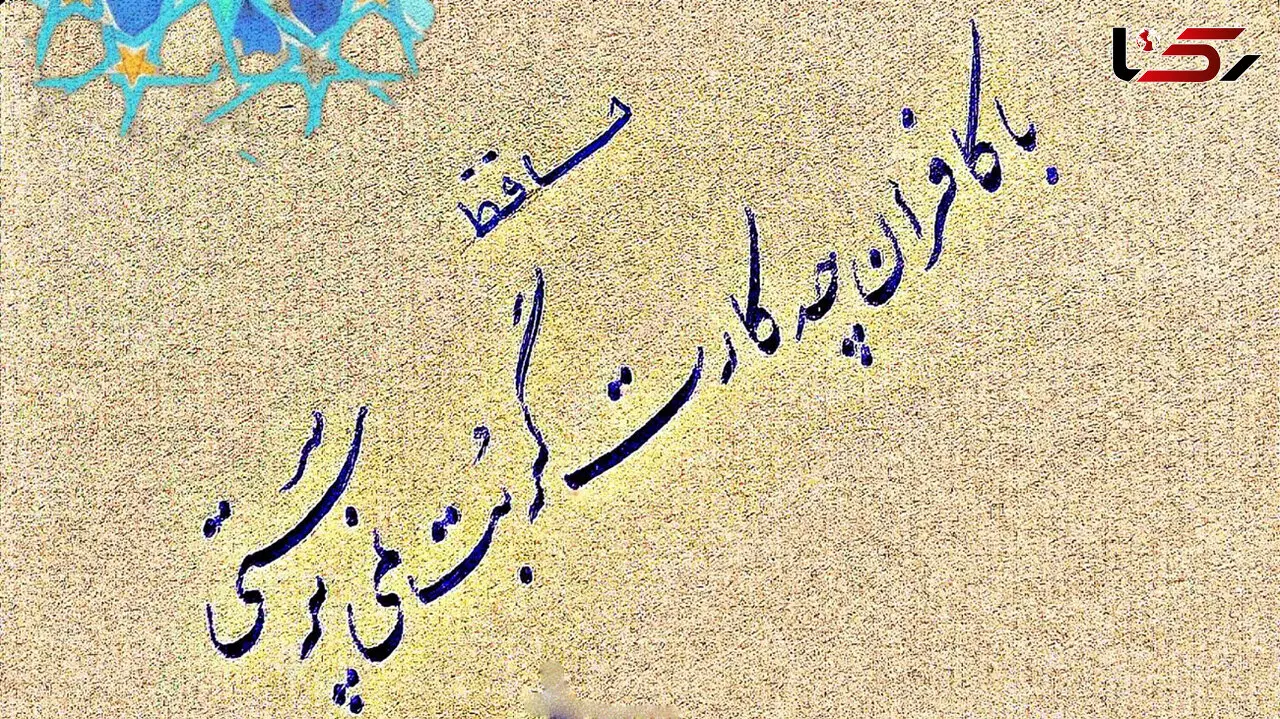 رکنا
حافظ
با کافران چه کارت گر بُت نمی پرستی